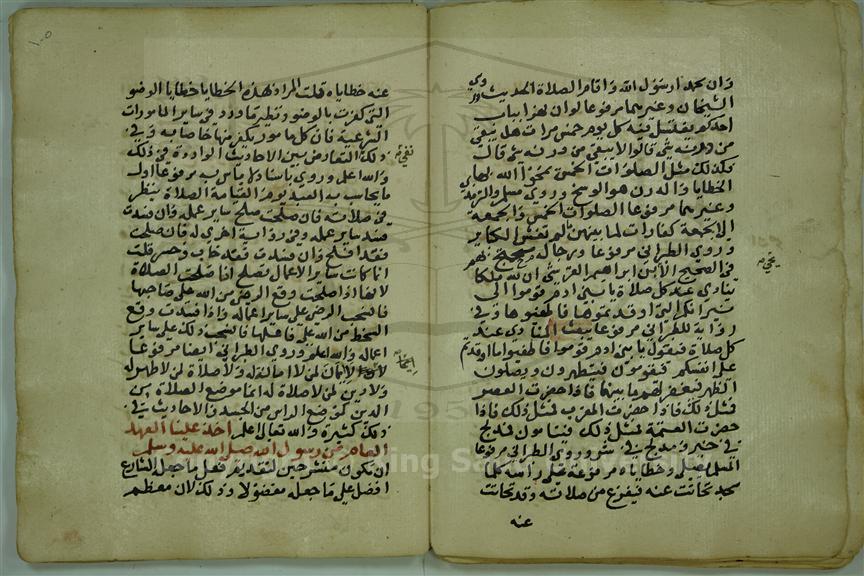 وان محمدا رسول الله واقام الصلاة الحديث وروي
الشيخان وغيرهما مرفوعا لو ان نهرا بباب
احدكم يغتسل فيه كل يوم خمس مرات هل يبقى
من درنه شي قالوا لا يبقى من درنه شي قال
فكذلك مثل الصلوات الخمس يمحو الله بهن
الخطايا والدرن هو الوسخ وروي مسلم والترمذي
وغيرهما مرفوعا الصلوات الخمس والجمعة
الى الجمعة كفارات لما بينهن ما لم تغش الكباير
وروي الطبراني مرفوعا ورجاله محتج بهم
في الصحيح الا ابن ابراهيم القرشي ان لله ملكا
ينادي عند كل صلاة يا بني ادم قوموا الى
نيرانكم التي اوقدتموها فاطفئوها وفي
رواية للطبراني مرفوعا يبعث المنادي عند
كل صلاة فيقول يا بني ادم قوموا فاطفيوا ما اوقدتم
على انفسكم فيقومون فيتطهرون ويصلون
الظهر فيغفر لهم ما بينهما فاذا حضرت العصر
فمثل ذلك فاذا حضرت المغرب فمثل ذلك فاذا
حضرت العتمة فمثل ذلك فينامون فمدلج
في خير ومدلج في شر وروي الطبراني مرفوعا
المسلم يصلي وخطاياه مرفوعة على راسه كلما
سجد تحاتت عنه فيفرغ من صلاته وقد تحاتت
عنه
يحيى
١٠٥
عنه خطاياه قلت المراد بهذه الخطايا خطايا الوضو
التي كفرت بالوضو ونظيره ما ورد في ساير المامورات
الشرعية فان كل مامور يكفر منهيا خاصا به وفي
ذلك التعارض بين الاحاديث الواردة في ذلك
والله اعلم وروي باسناد لا باس به مرفوعا اول
ما يحاسب به العبد يوم القيامة الصلاة ينظر
في صلاته فان صلحت صلح ساير عمله وان فسدت
فسد ساير عمله وفي رواية اخري له فان صلحت
فقد افلح وان فسدت فقد خاب وخسر قلت
انما كانت ساير الاعمال تصلح اذا صلحت الصلاة
لانها اذا صلحت وقع الرضى من الله على صاحبها
فانسحب الرضى على ساير اعماله واذا فسدت وقع
السخط من الله على فاعلها فانسحب ذلك على ساير
اعماله والله اعلم وروي الطبراني ايضا مرفوعا
لا ايمان لمن لا امانة له ولا صلاة لمن لا طهور له
ولا دين لمن لا صلاة له انما موضع الصلاة من
الدين كموضع الراس من الجسد والاحاديث في
ذلك كثيرة والله تعالى اعلم اخذ علينا العهد
العام من رسول الله صلى الله عليه وسلم
ان نكون منشرحين لتقديم فعل ما جعل الشارع
افضل على ما جعله مفضولا وذلك لان معظم